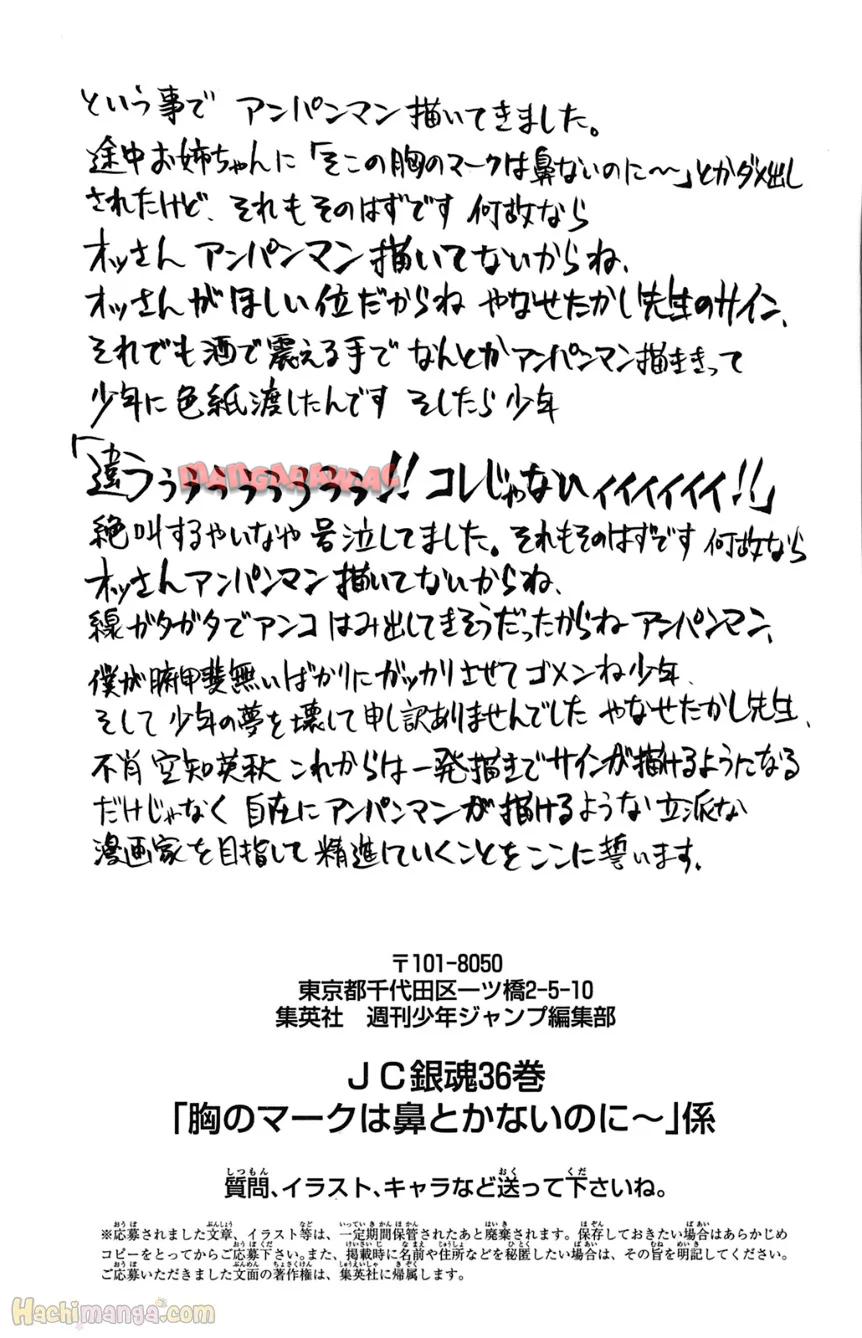 という事で アンパンマン描いてきました。
途中お姉ちゃんに「そこの胸のマークは鼻ないのに〜」とかダメ出し
されたけど、それもそのはずです 何故なら
オッさん アンパンマン描いてないからね、
オッさんがほしい位だからね やなせたかし先生のサイン、
それでも酒で震える手で なんとかアンパンマン描ききって
少年に色紙渡したんです そしたら少年
「違うぅぅぅぅぅぅぅぅ!! コレじゃないィィィィィィ!!」
MANGARAW.AC
絶叫するやいなや 号泣してました。それもそのはずです 何故なら
オッさんアンパンマン描いてないからね、
線ガタガタでアンコはみ出してきそうだったからね アンパンマン、
僕が腑甲斐無いばかりにガッカリさせてゴメンね少年、
そして少年の夢を壊して申し訳ありませんでした やなせたかし先生、
不肖 空知英秋 これからは一発描きでサインが描けるようになる
だけじゃなく 自在にアンパンマンが描けるような立派な
漫画家を目指して精進していくことをここに誓います。
〒101-8050
東京都千代田区一ツ橋2-5-10
集英社 週刊少年ジャンプ編集部
JC銀魂36巻
「胸のマークは鼻とかないのに〜」係
質問、イラスト、キャラなど送って下さいね。
※応募されました文章、イラスト等は、一定期間保管されたあと廃棄されます。保存しておきたい場合はあらかじめ
コピーをとってからご応募下さい。また、掲載時に名前や住所などを秘匿したい場合は、その旨を明記してください。
ご応募いただきました文面の著作権は、集英社に帰属します。
Hachimanga.com